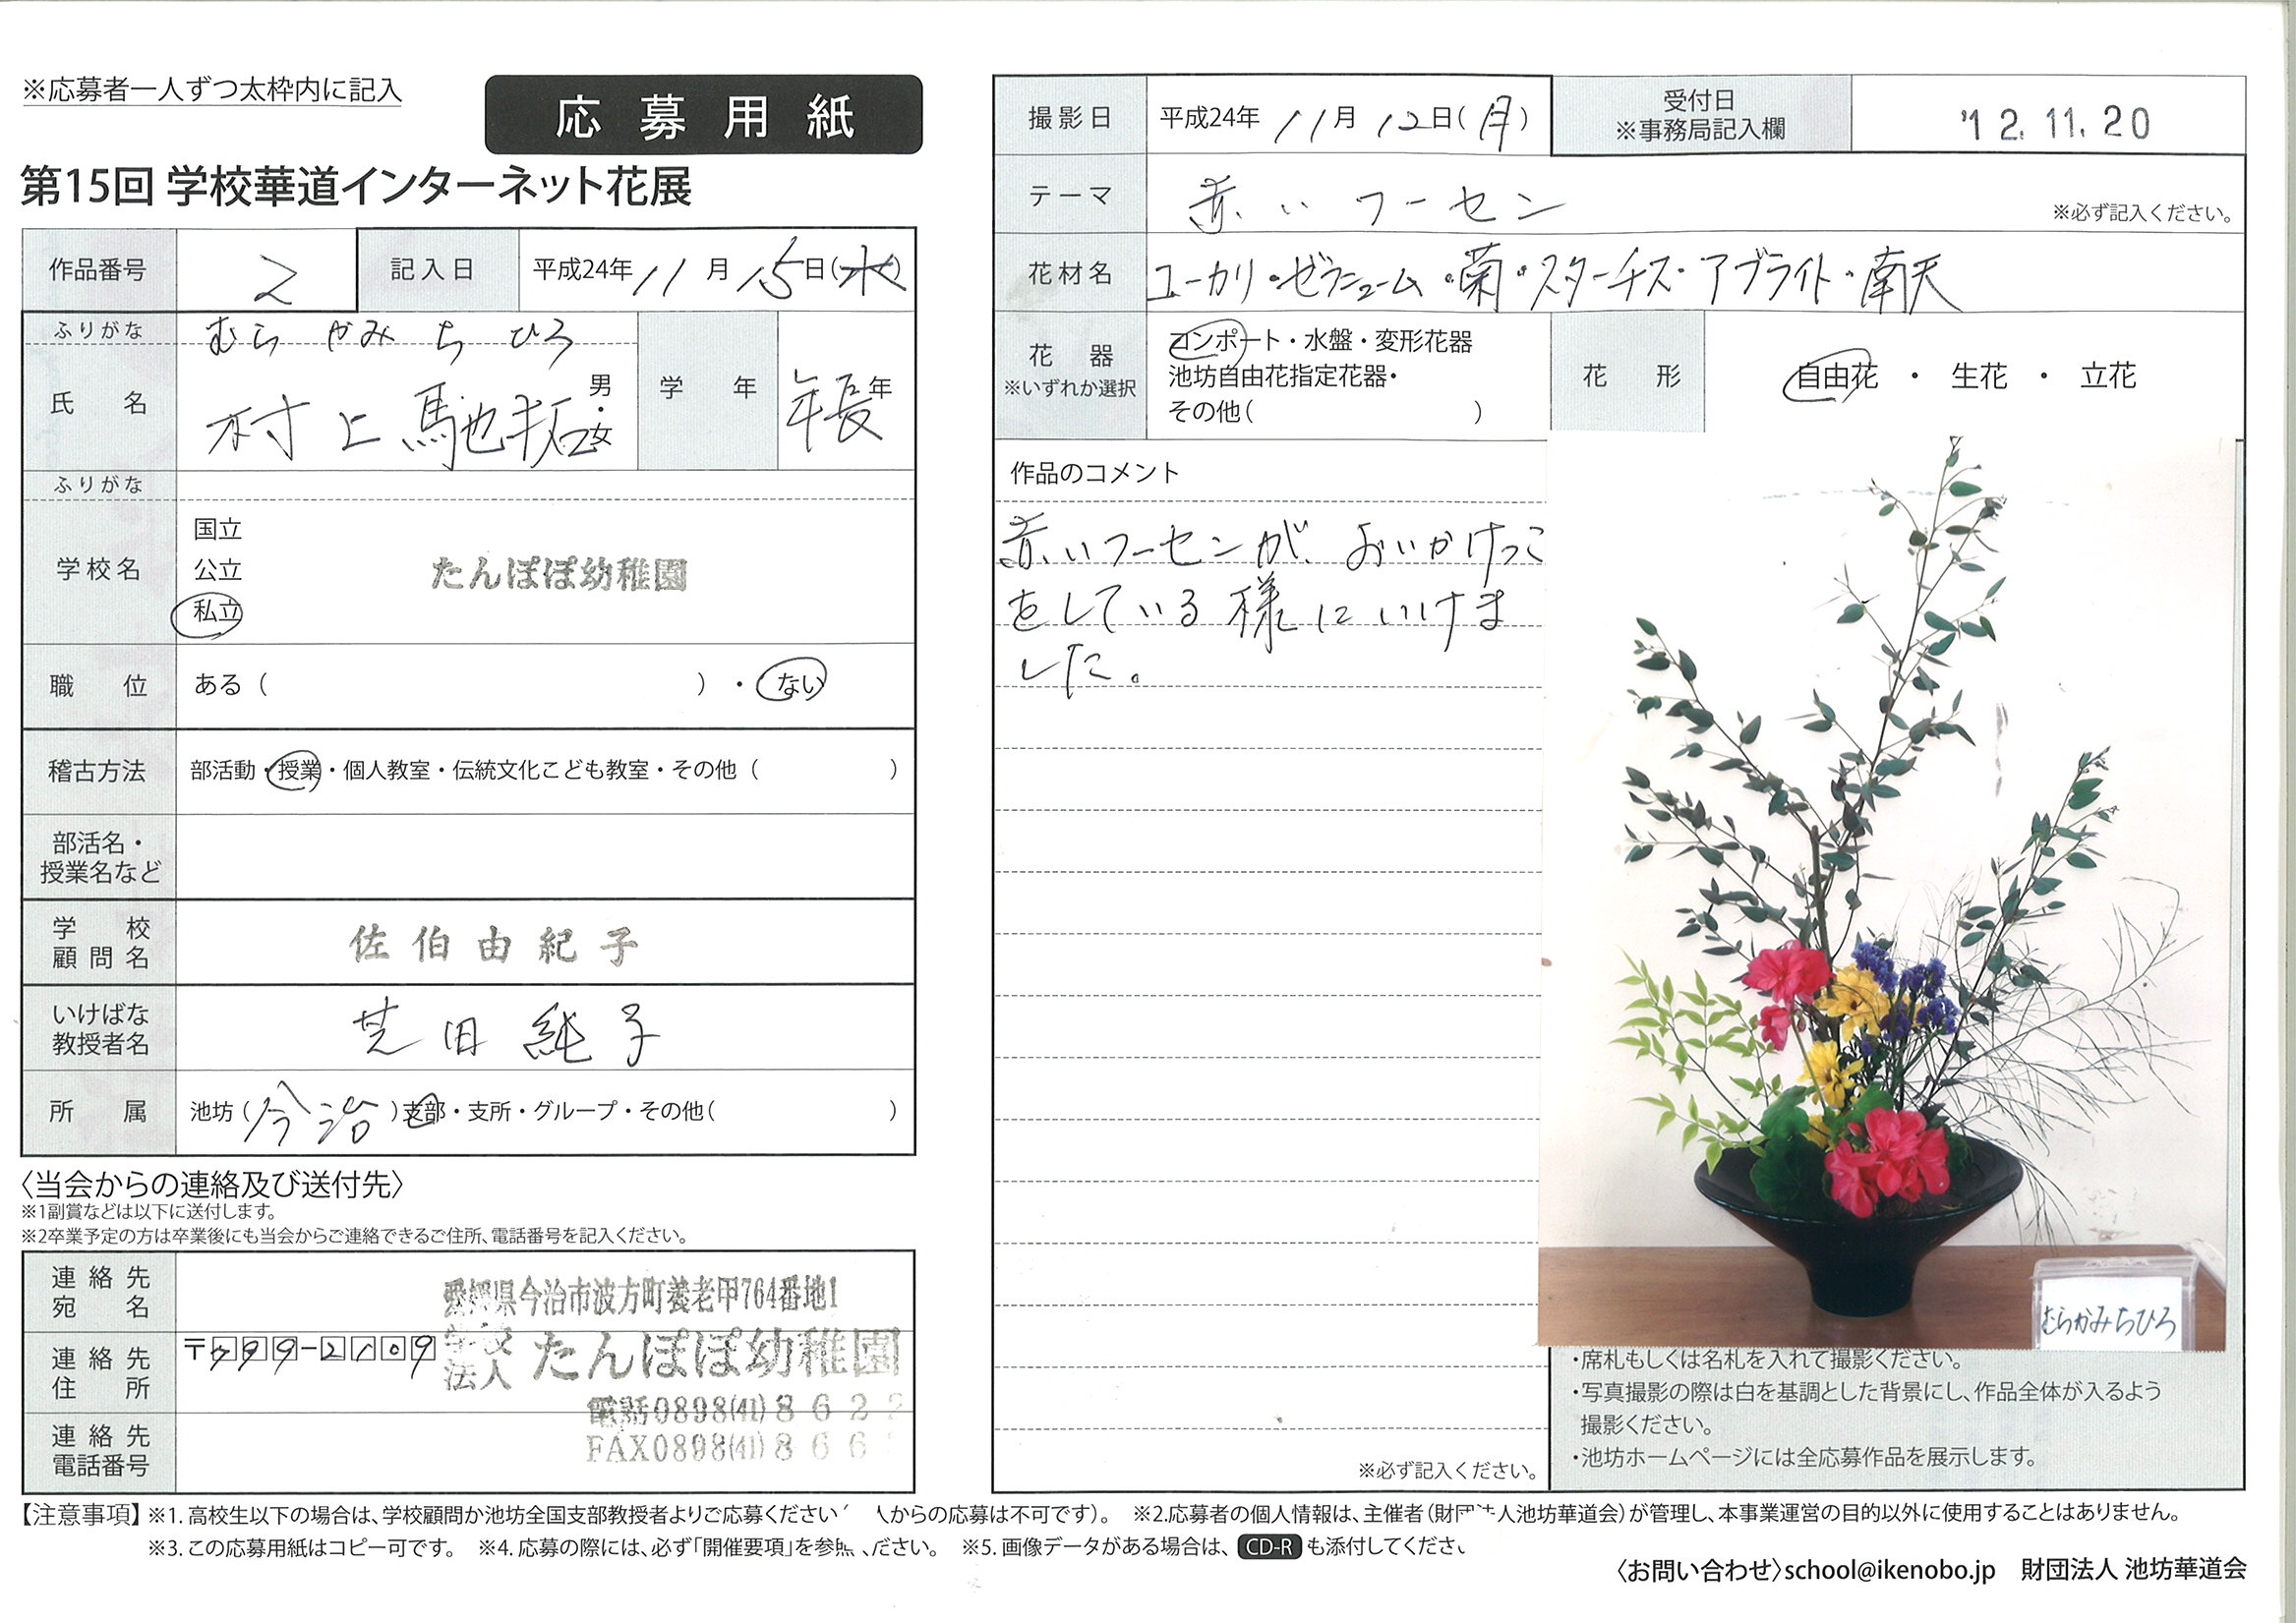 ※応募者一人ずつ太枠内に記入
応募用紙
第15回 学校華道インターネット花展
作品番号 2 記入日 平成24年11月15日(水)
ふりがな むらかみ ちひろ
氏名 村上 馳拓 男・女 学年 年長年
ふりがな
学校名 国立
公立
私立
たんぽぽ幼稚園
職位 ある( )・ない
稽古方法 部活動・授業・個人教室・伝統文化こども教室・その他( )
部活名・
授業名など
学校
顧問名 佐伯由紀子
いけばな
教授者名 芝田純子
所属 池坊(今治)支部・支所・グループ・その他( )
〈当会からの連絡及び送付先〉
※1副賞などは以下に送付します。
※2卒業予定の方は卒業後にも当会からご連絡できるご住所、電話番号を記入ください。
連絡先
宛名
愛媛県今治市波方町養老甲764番地1
連絡先
住所
〒799-2109
学校
法人 たんぽぽ幼稚園
連絡先
電話番号
電話0898(41)8622
FAX0898(41)866
撮影日 平成24年11月12日(月) 受付日
※事務局記入欄 '12.11.20
テーマ 赤いフーセン ※必ず記入ください。
花材名 ユーカリ・ゼラニューム・菊・スターチス・アブライト・南天
花器
※いずれか選択
コンポート・水盤・変形花器
池坊自由花指定花器・
その他( )
花形 自由花・生花・立花
作品のコメント
赤いフーセンが、おいかけっこ
をしている様にいけま
した。
※必ず記入ください。
むらかみちひろ
・席札もしくは名札を入れて撮影ください。
・写真撮影の際は白を基調とした背景にし、作品全体が入るよう
撮影ください。
・池坊ホームページには全応募作品を展示します。
【注意事項】※1.高校生以下の場合は、学校顧問か池坊全国支部教授者よりご応募ください 人からの応募は不可です)。 ※2.応募者の個人情報は、主催者(財団法人池坊華道会)が管理し、本事業運営の目的以外に使用することはありません。
※3.この応募用紙はコピー可です。 ※4.応募の際には、必ず「開催要項」を参照ください。 ※5.画像データがある場合は、CD-Rも添付してください
〈お問い合わせ〉school@ikenobo.jp 財団法人 池坊華道会